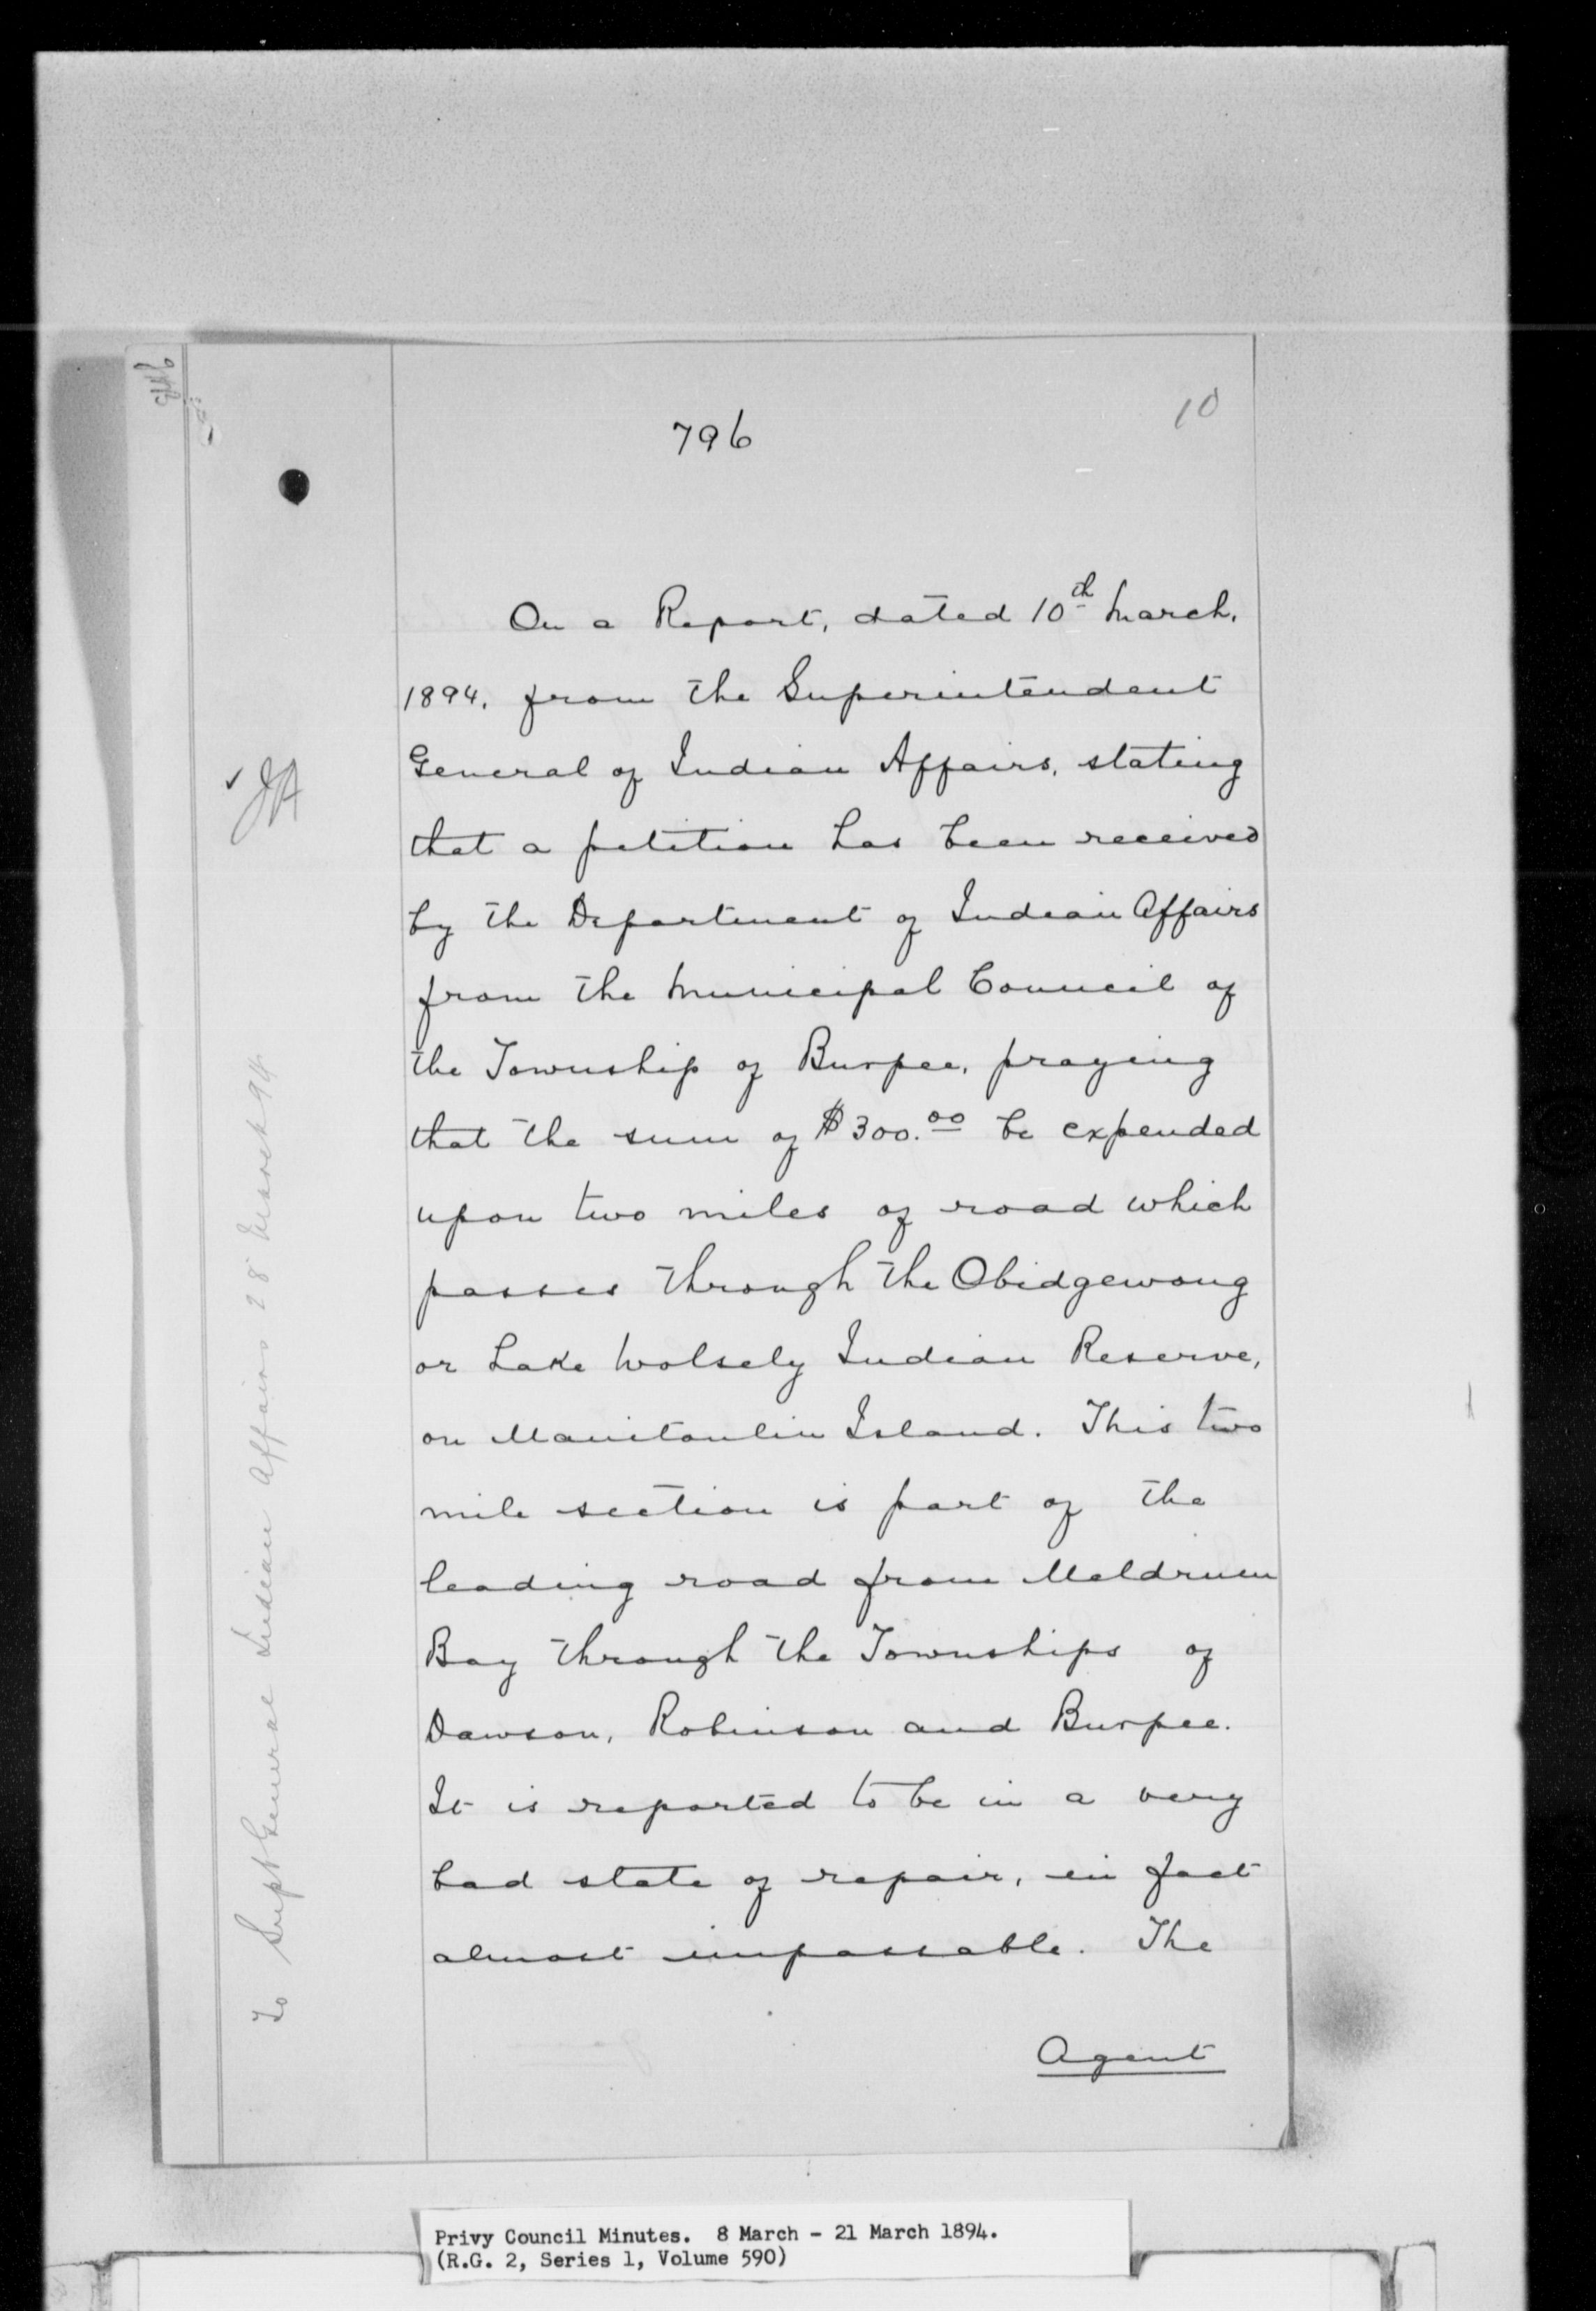 796
10
On a Report, dated 10th March,
1894, from the Superintendent
General of Indian Affairs, stating
that a petition has been received
by the Department of Indian Affairs
from the Municipal Council of
the Township of Burpee, praying
that the sum of $300.00 be expended
upon two miles of road which
passes through the Obidgewong
or Lake Wolsely Indian Reserve,
on Manitoulin Island. This two
mile section is part of the
leading road from Meldrum
Bay through the Townships of
Dawson, Robinson and Burpee.
It is reported to be in a very
bad state of repair, in fact
almost impassable. The
Agent
JA
To Supt General Indian Affairs 28 March 94
Privy Council Minutes. 8 March - 21 March 1894.
(R.G. 2, Series 1, Volume 590)